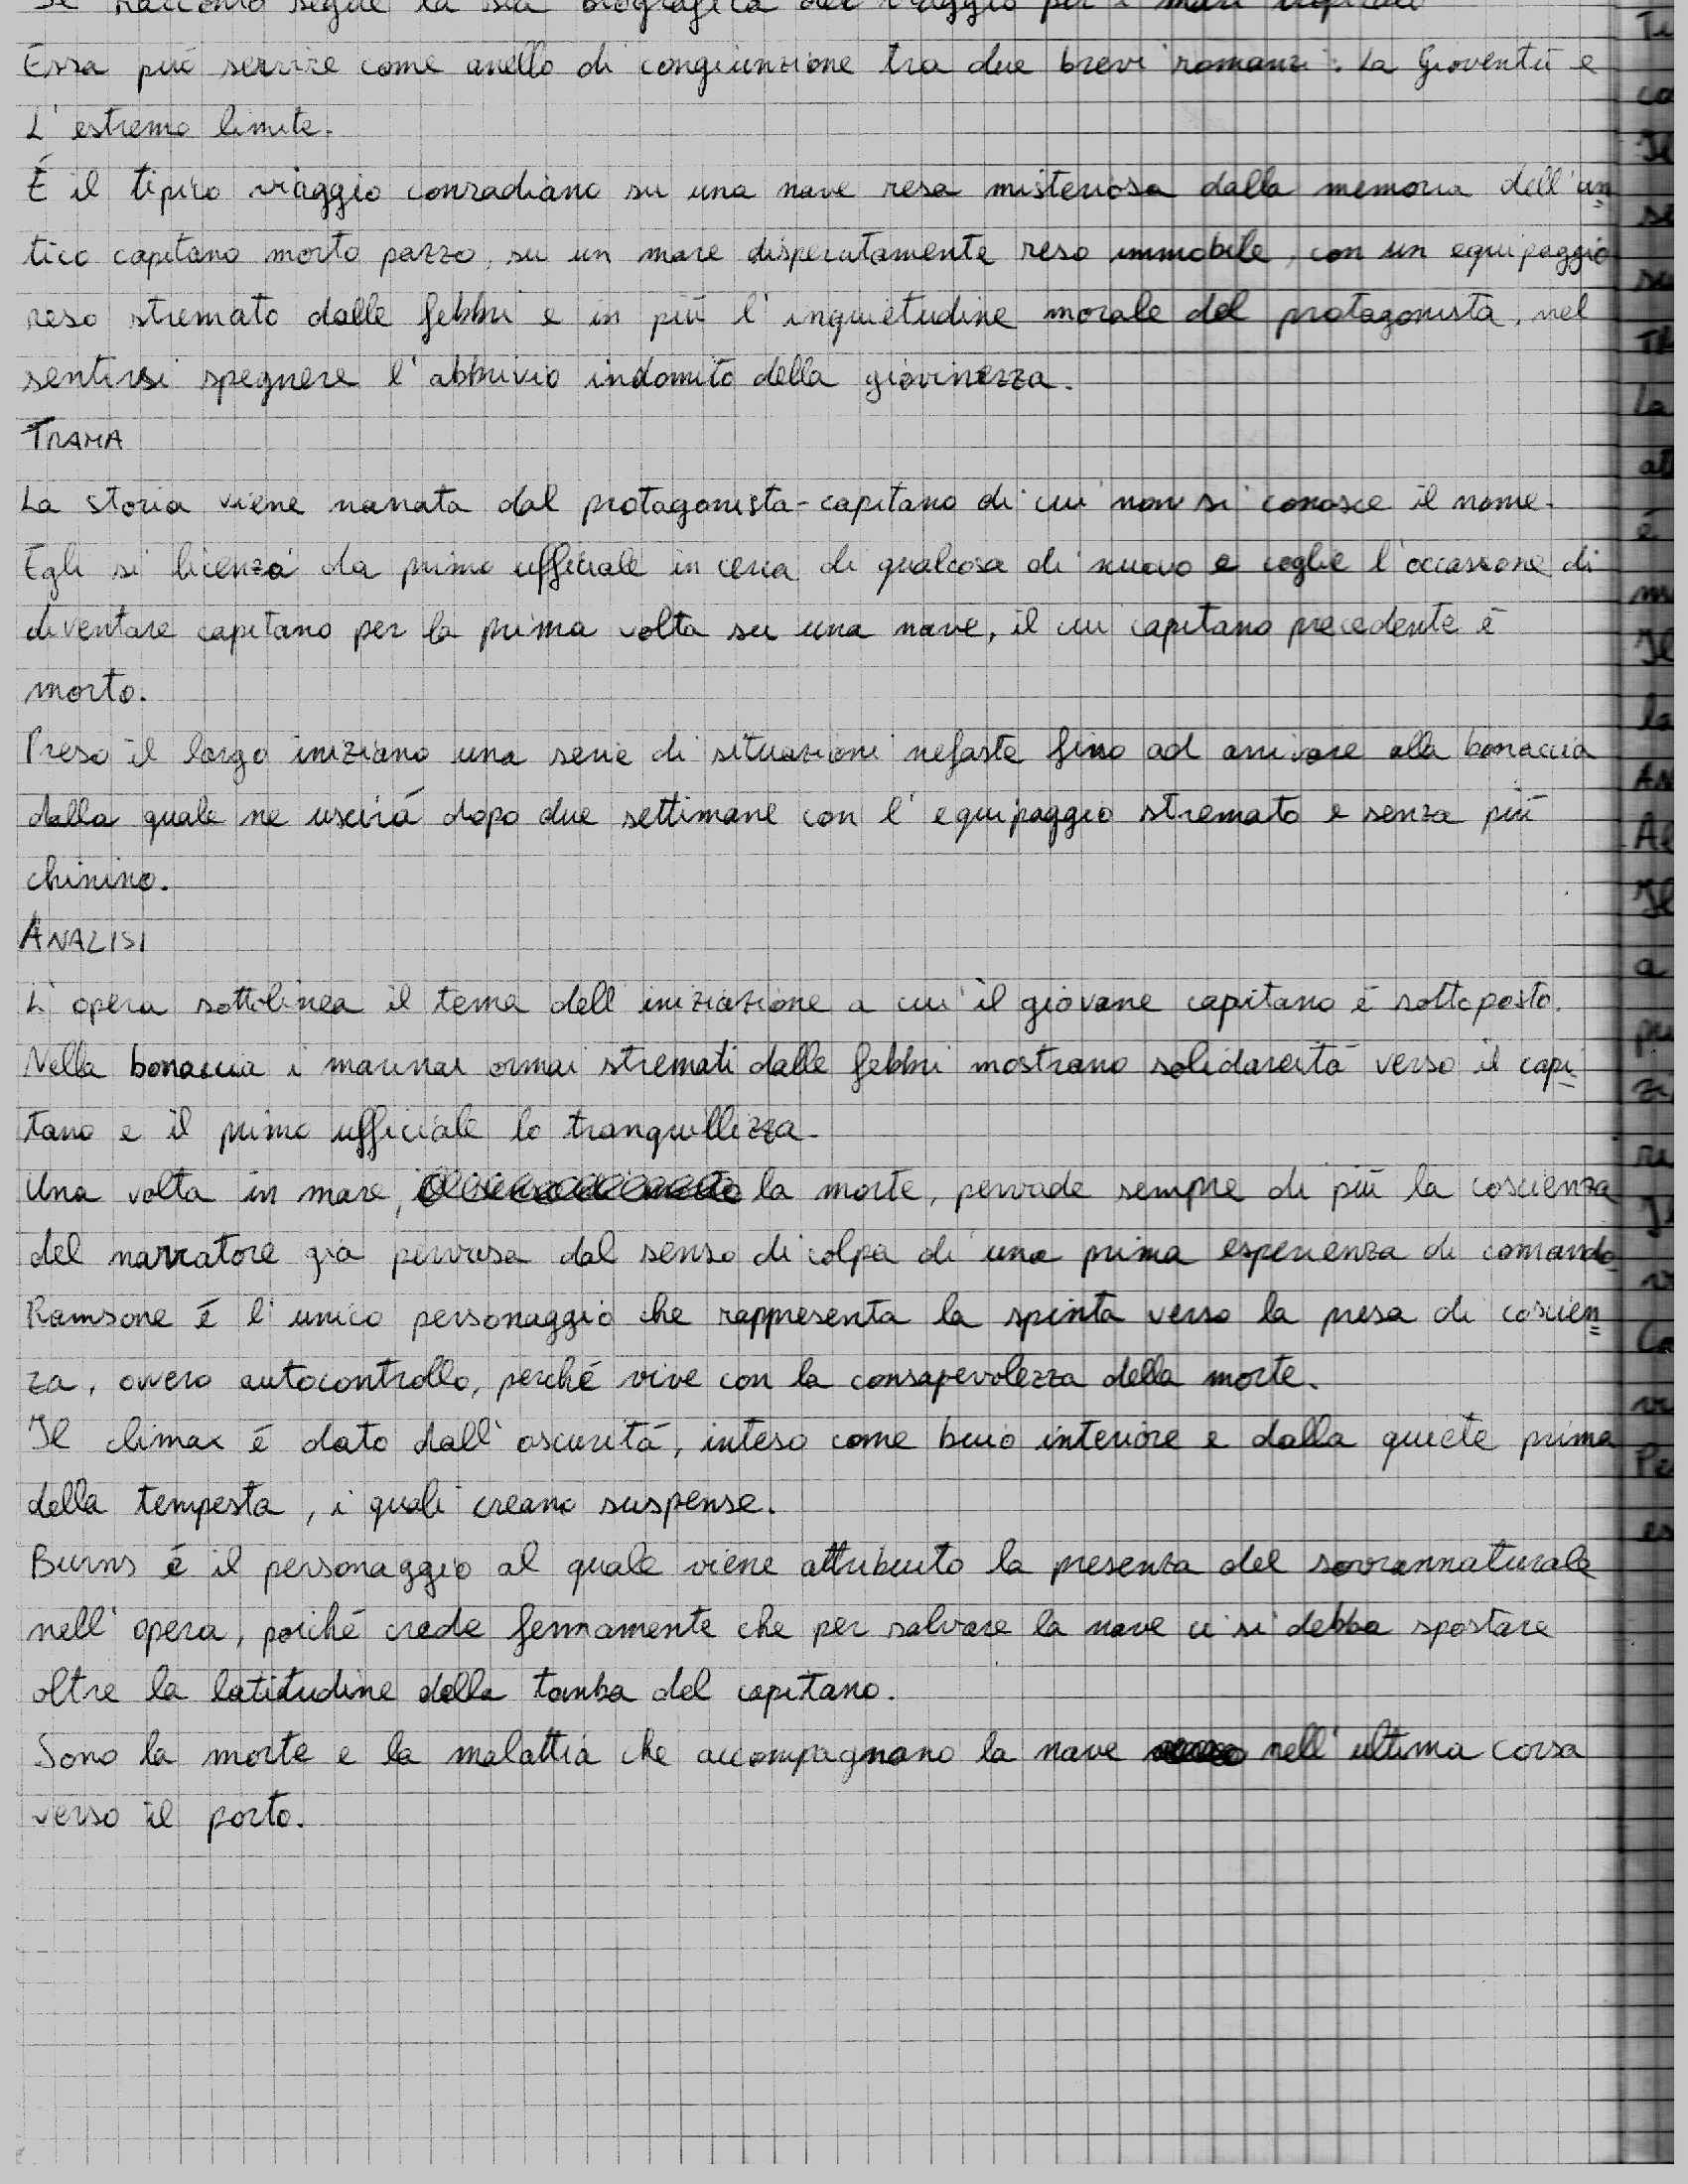 Il racconto segue la sua biografica del viaggio per i mari tropicali
Essa può servire come anello di congiunzione tra due brevi romanzi: La Gioventù e
L'estremo limite.
È il tipico viaggio conradiano su una nave resa misteriosa dalla memoria dell'an=
tico capitano morto pazzo, su un mare disperatamente reso immobile, con un equipaggio
reso stremato dalle febbri e in più l'inquietudine morale del protagonista, nel
sentirsi spegnere l'abbrivio indomito della giovinezza.
TRAMA
La storia viene narrata dal protagonista-capitano di cui non si conosce il nome.
Egli si licenza da primo ufficiale in cerca di qualcosa di nuovo e coglie l'occasione di
diventare capitano per la prima volta su una nave, il cui capitano precedente è
morto.
Preso il largo iniziano una serie di situazioni nefaste fino ad arrivare alla bonaccia
dalla quale ne uscirà dopo due settimane con l'equipaggio stremato e senza più
chinino.
ANALISI
L'opera sottolinea il tema dell'iniziazione a cui il giovane capitano è sottoposto.
Nella bonaccia i marinai ormai stremati dalle febbri mostrano solidarietà verso il capi=
tano e il primo ufficiale lo tranquillizza.
Una volta in mare, la morte, pervade sempre di più la coscienza
del narratore già pervasa dal senso di colpa di una prima esperienza di comando.
Ramsone è l'unico personaggio che rappresenta la spinta verso la presa di coscien=
za, ovvero autocontrollo, perché vive con la consapevolezza della morte.
Il climax è dato dall'oscurità, inteso come buio interiore e dalla quiete prima
della tempesta, i quali creano suspense.
Burns è il personaggio al quale viene attribuito la presenza del sovrannaturale
nell'opera, poiché crede fermamente che per salvare la nave ci si debba spostare
oltre la latitudine della tomba del capitano.
Sono la morte e la malattia che accompagnano la nave nell'ultima corsa
verso il porto.